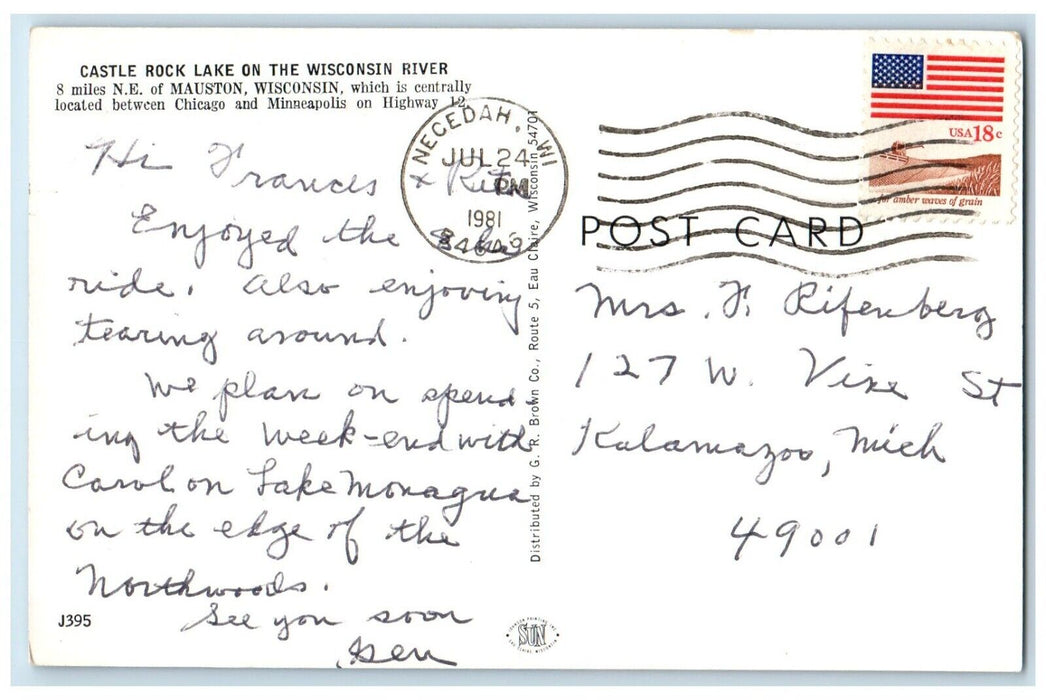 CASTLE ROCK LAKE ON THE WISCONSIN RIVER
8 miles N.E. of MAUSTON, WISCONSIN, which is centrally
located between Chicago and Minneapolis on Highway 12.
Hi Frances
& Rita
Enjoyed the
ride. Also enjoying
tearing around.
We plan on spend
ing the week-end with
Carol on Lake Monagua
on the edge of the
Northwoods.
See you soon
Gen
J395
NECEDAH, WI
JUL 24
PM
1981
Distributed by G. R. Brown Co., Route 5, Eau Claire, Wisconsin 54701
SUN
USA 18c
for amber waves of grain
POST CARD
Mrs. F. Rifenberg
127 W. Vine St
Kalamazoo, Mich
49001